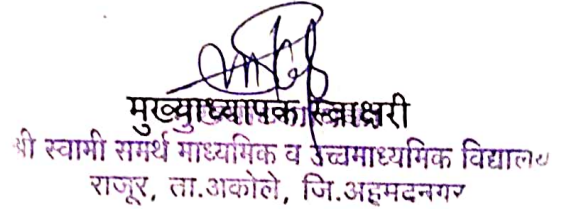 मुख्याध्यापक स्वाक्षरी
श्री स्वामी समर्थ माध्यमिक व उच्चमाध्यमिक विद्यालय
राजूर, ता.अकोले, जि.अहमदनगर